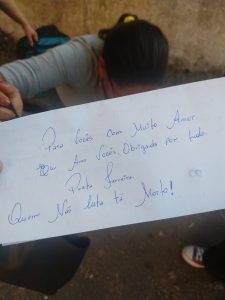 Para Vocês com Muito Amor
Amo Vocês, Obrigado por tudo
Preto Ferreira
Quem Não luta tá Morto!